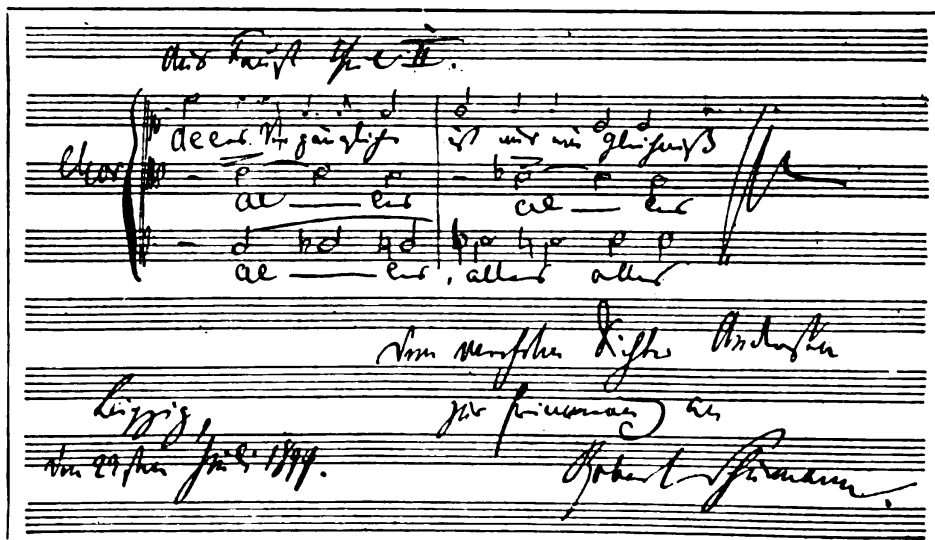 Aus Faust Theil II.
Chor
Alles Vergängliche ist nur ein Gleichniß
Al — les al — les
al — les, alles alles
Dem verehrten Dichter Andersen
zur Erinnerung an
Leipzig,
den 22sten Juli 1844.
Robert Schumann.